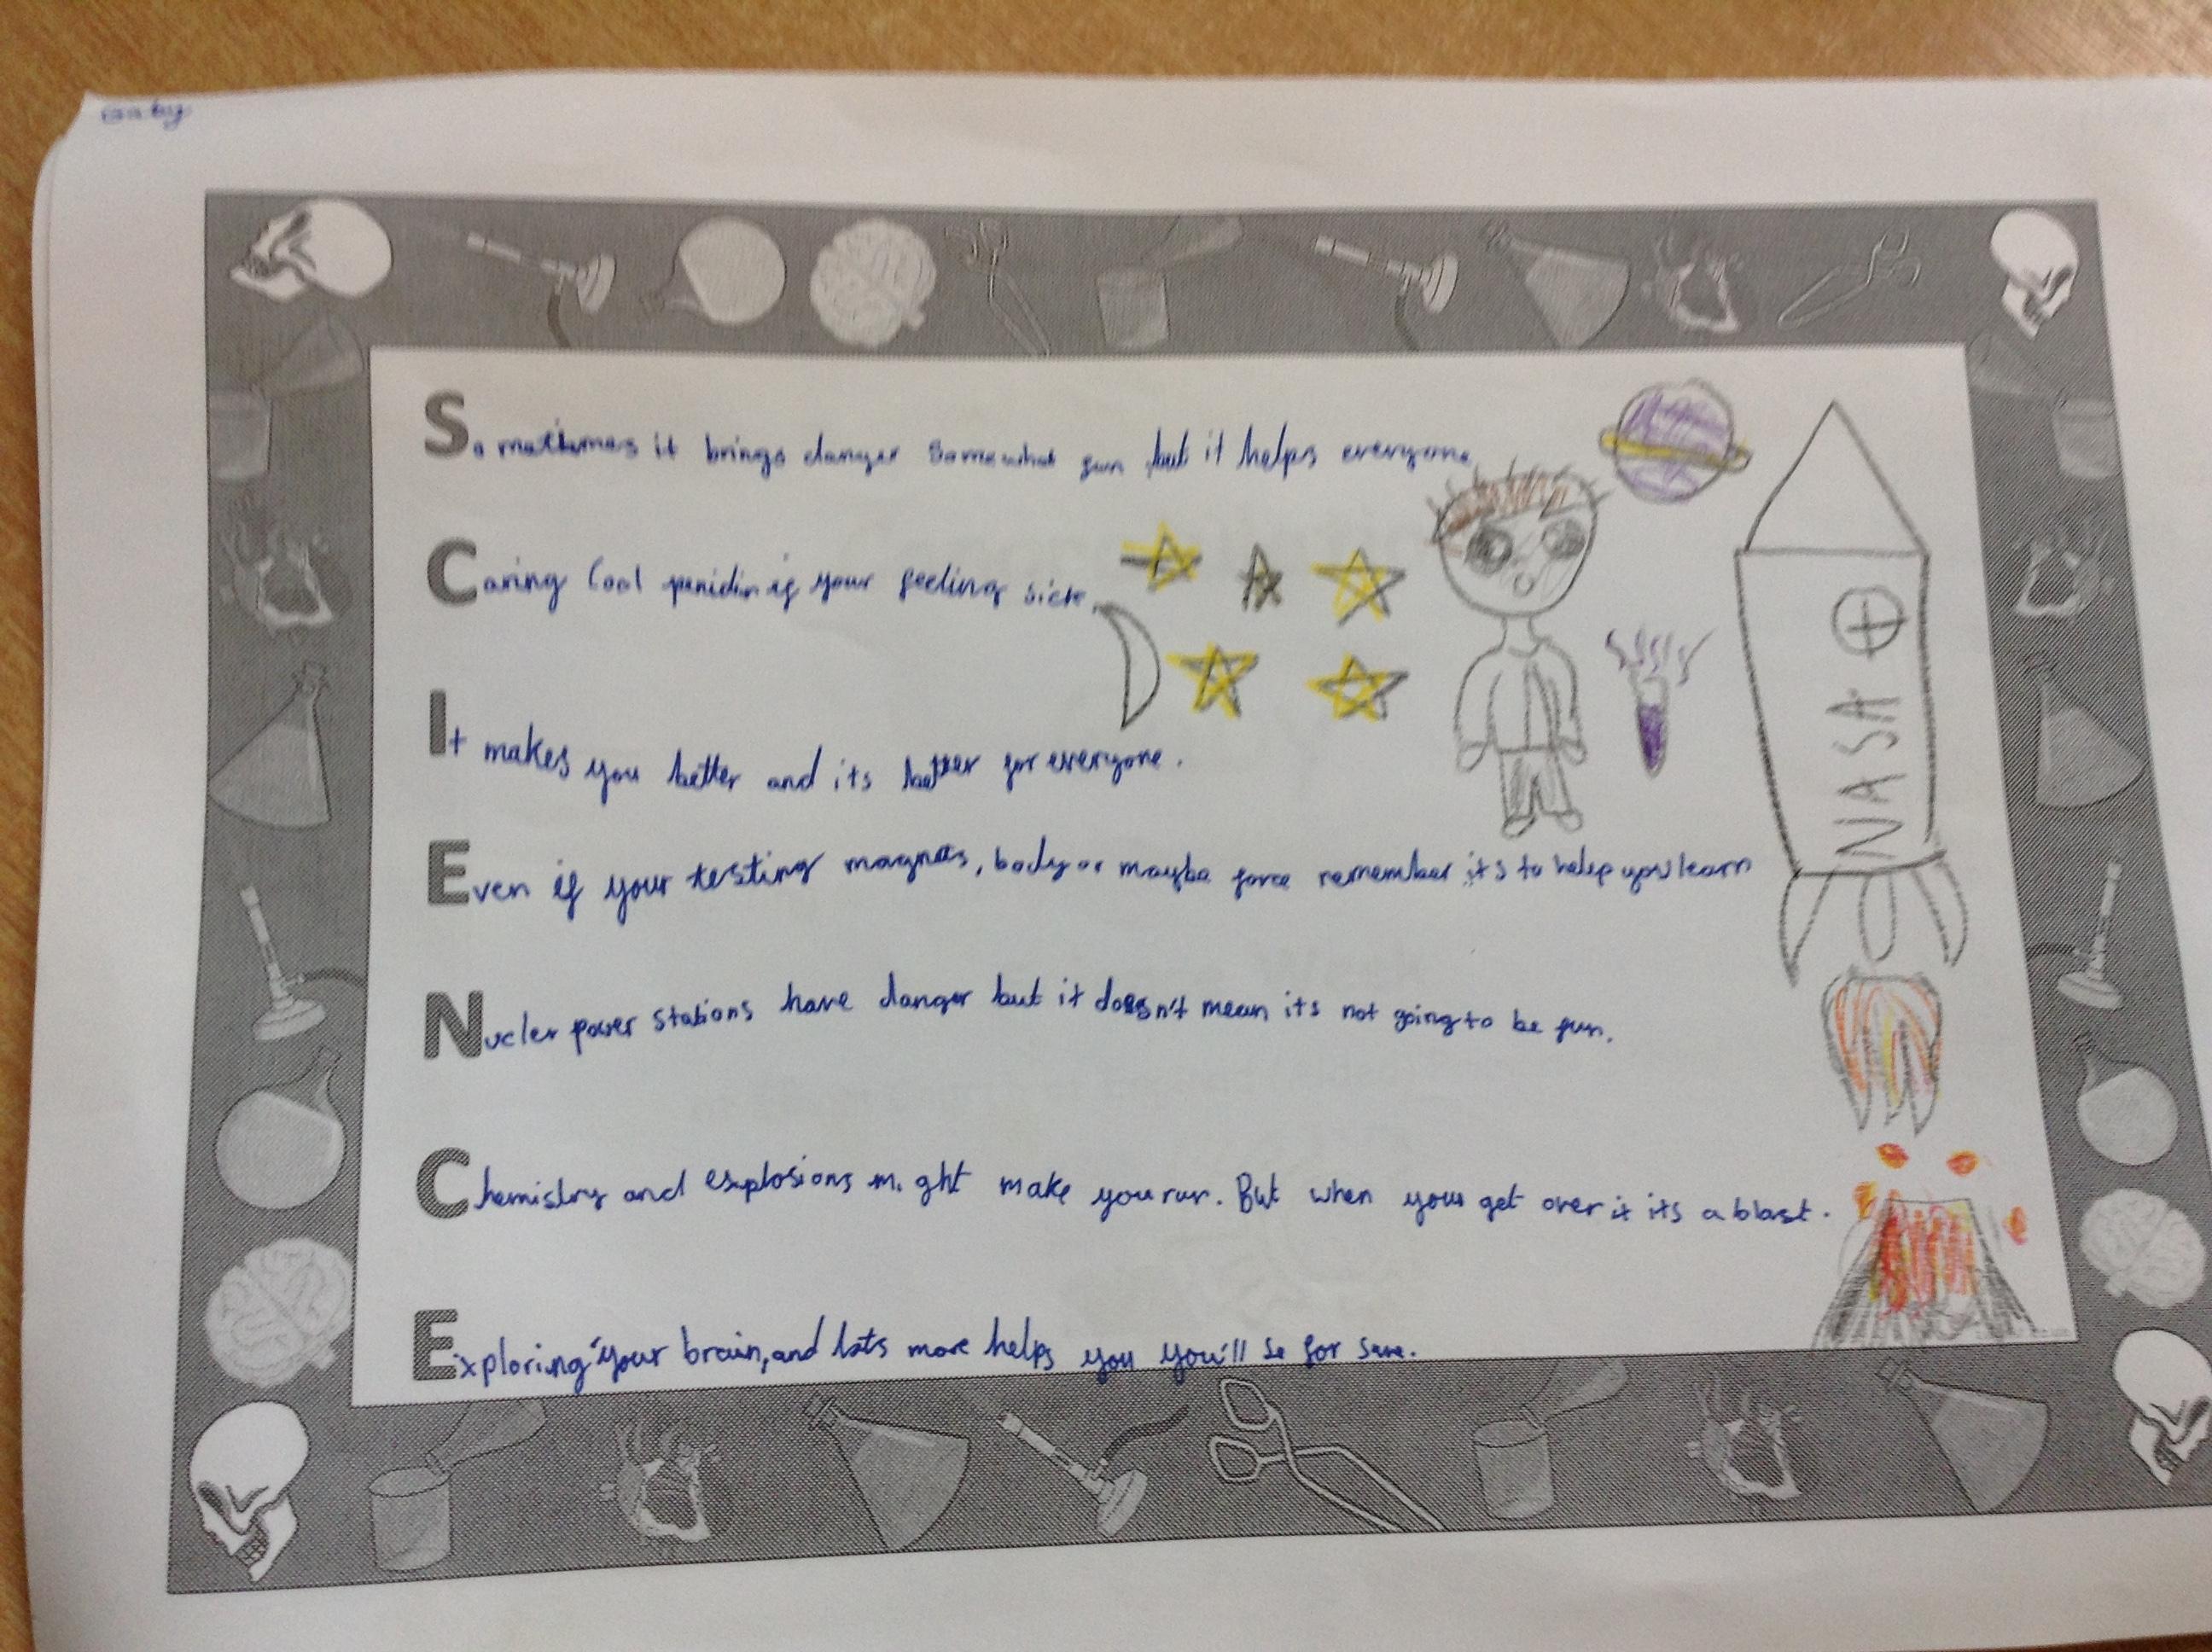 Gaby
Sometimes it brings danger somewhat fun but it helps everyone
Caring Cool if your feeling sick.
It makes you better and its better for everyone.
Even if your testing magnets, body or maybe force remember its to helep you learn
NASA
Nucler power stations have danger but it doesn't mean its not going to be fun.
Chemistry and explosions might make you run. But when your get over it its a blast.
Exploring your brain, and lots more helps you you'll se for sure.